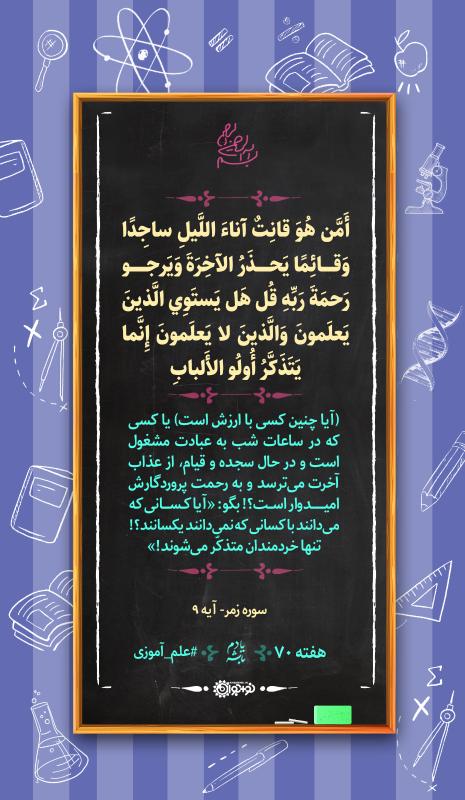 أَمَّن هُوَ قانِتٌ آناءَ اللَّيلِ ساجِدًا
وَقائِمًا يَحذَرُ الآخِرَةَ وَيَرجو
رَحمَةَ رَبِّهِ قُل هَل يَستَوِي الَّذينَ
يَعلَمونَ وَالَّذينَ لا يَعلَمونَ إِنَّما
يَتَذَكَّرُ أُولُو الأَلبابِ
(آیا چنین کسی با ارزش است) یا کسی
که در ساعات شب به عبادت مشغول
است و در حال سجده و قیام، از عذاب
آخرت می‌ترسد و به رحمت پروردگارش
امیدوار است؟! بگو: «آیا کسانی که
می‌دانند با کسانی که نمی‌دانند یکسانند؟!
تنها خردمندان متذکّر می‌شوند!»
سوره زمر- آیه ۹
هفته ۷۰
#علم_آموزی